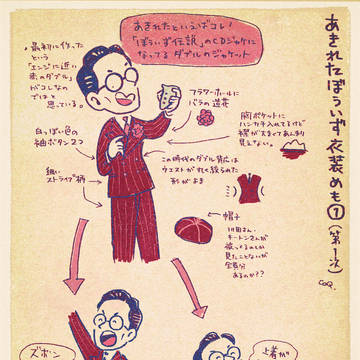 あきれたぼういず 衣装めも①(第1ネ)
あきれたといえばコレ!
「ぼういず伝説」のCDジャケに
なってる ダブルのジャケット
最初に作った
という
「エンジに近い
色のダブル」
がコレなの
ではと
思っている。
フラワーホールに
バラの造花
胸ポケットに
ハンカチ入れてるけど
襟が大きくてあんまり
見えない。
白っぽい色の
袖ボタン2つ
細い
ストライプ柄
この時代のダブル背広は
ウエストがすごく絞られた
形がち
帽子
川田さん、
キートンさんが
被ってるのしか
見たことないが
全員分
あるのか??
ズボン
上着が